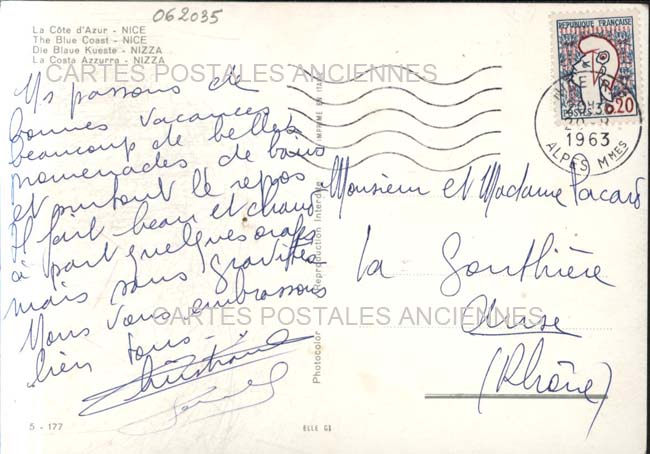 062035
La Côte d'Azur - NICE
The Blue Coast - NICE
Die Blaue Kueste - NIZZA
La Costa Azzurra - NIZZA
CARTES POSTALES ANCIENNES
Ns passons de
bonnes vacances
beaucoup de belles
promenades de bains
et surtout le repos
Il fait beau et chaud
à part quelques orages
mais sans gravités
Nous vous embrassons
bien tous
CARTES POSTALES ANCIENNES
5 - 177
ELLE GI
Photocolor
Reproduction Interdite
IMPRIMÉ EN ITALIE
REPUBLIQUE FRANÇAISE
POSTES
0,20
1963
ALPES Mmes
Monsieur et Madame
La Gonthière
Anse
(Rhône)